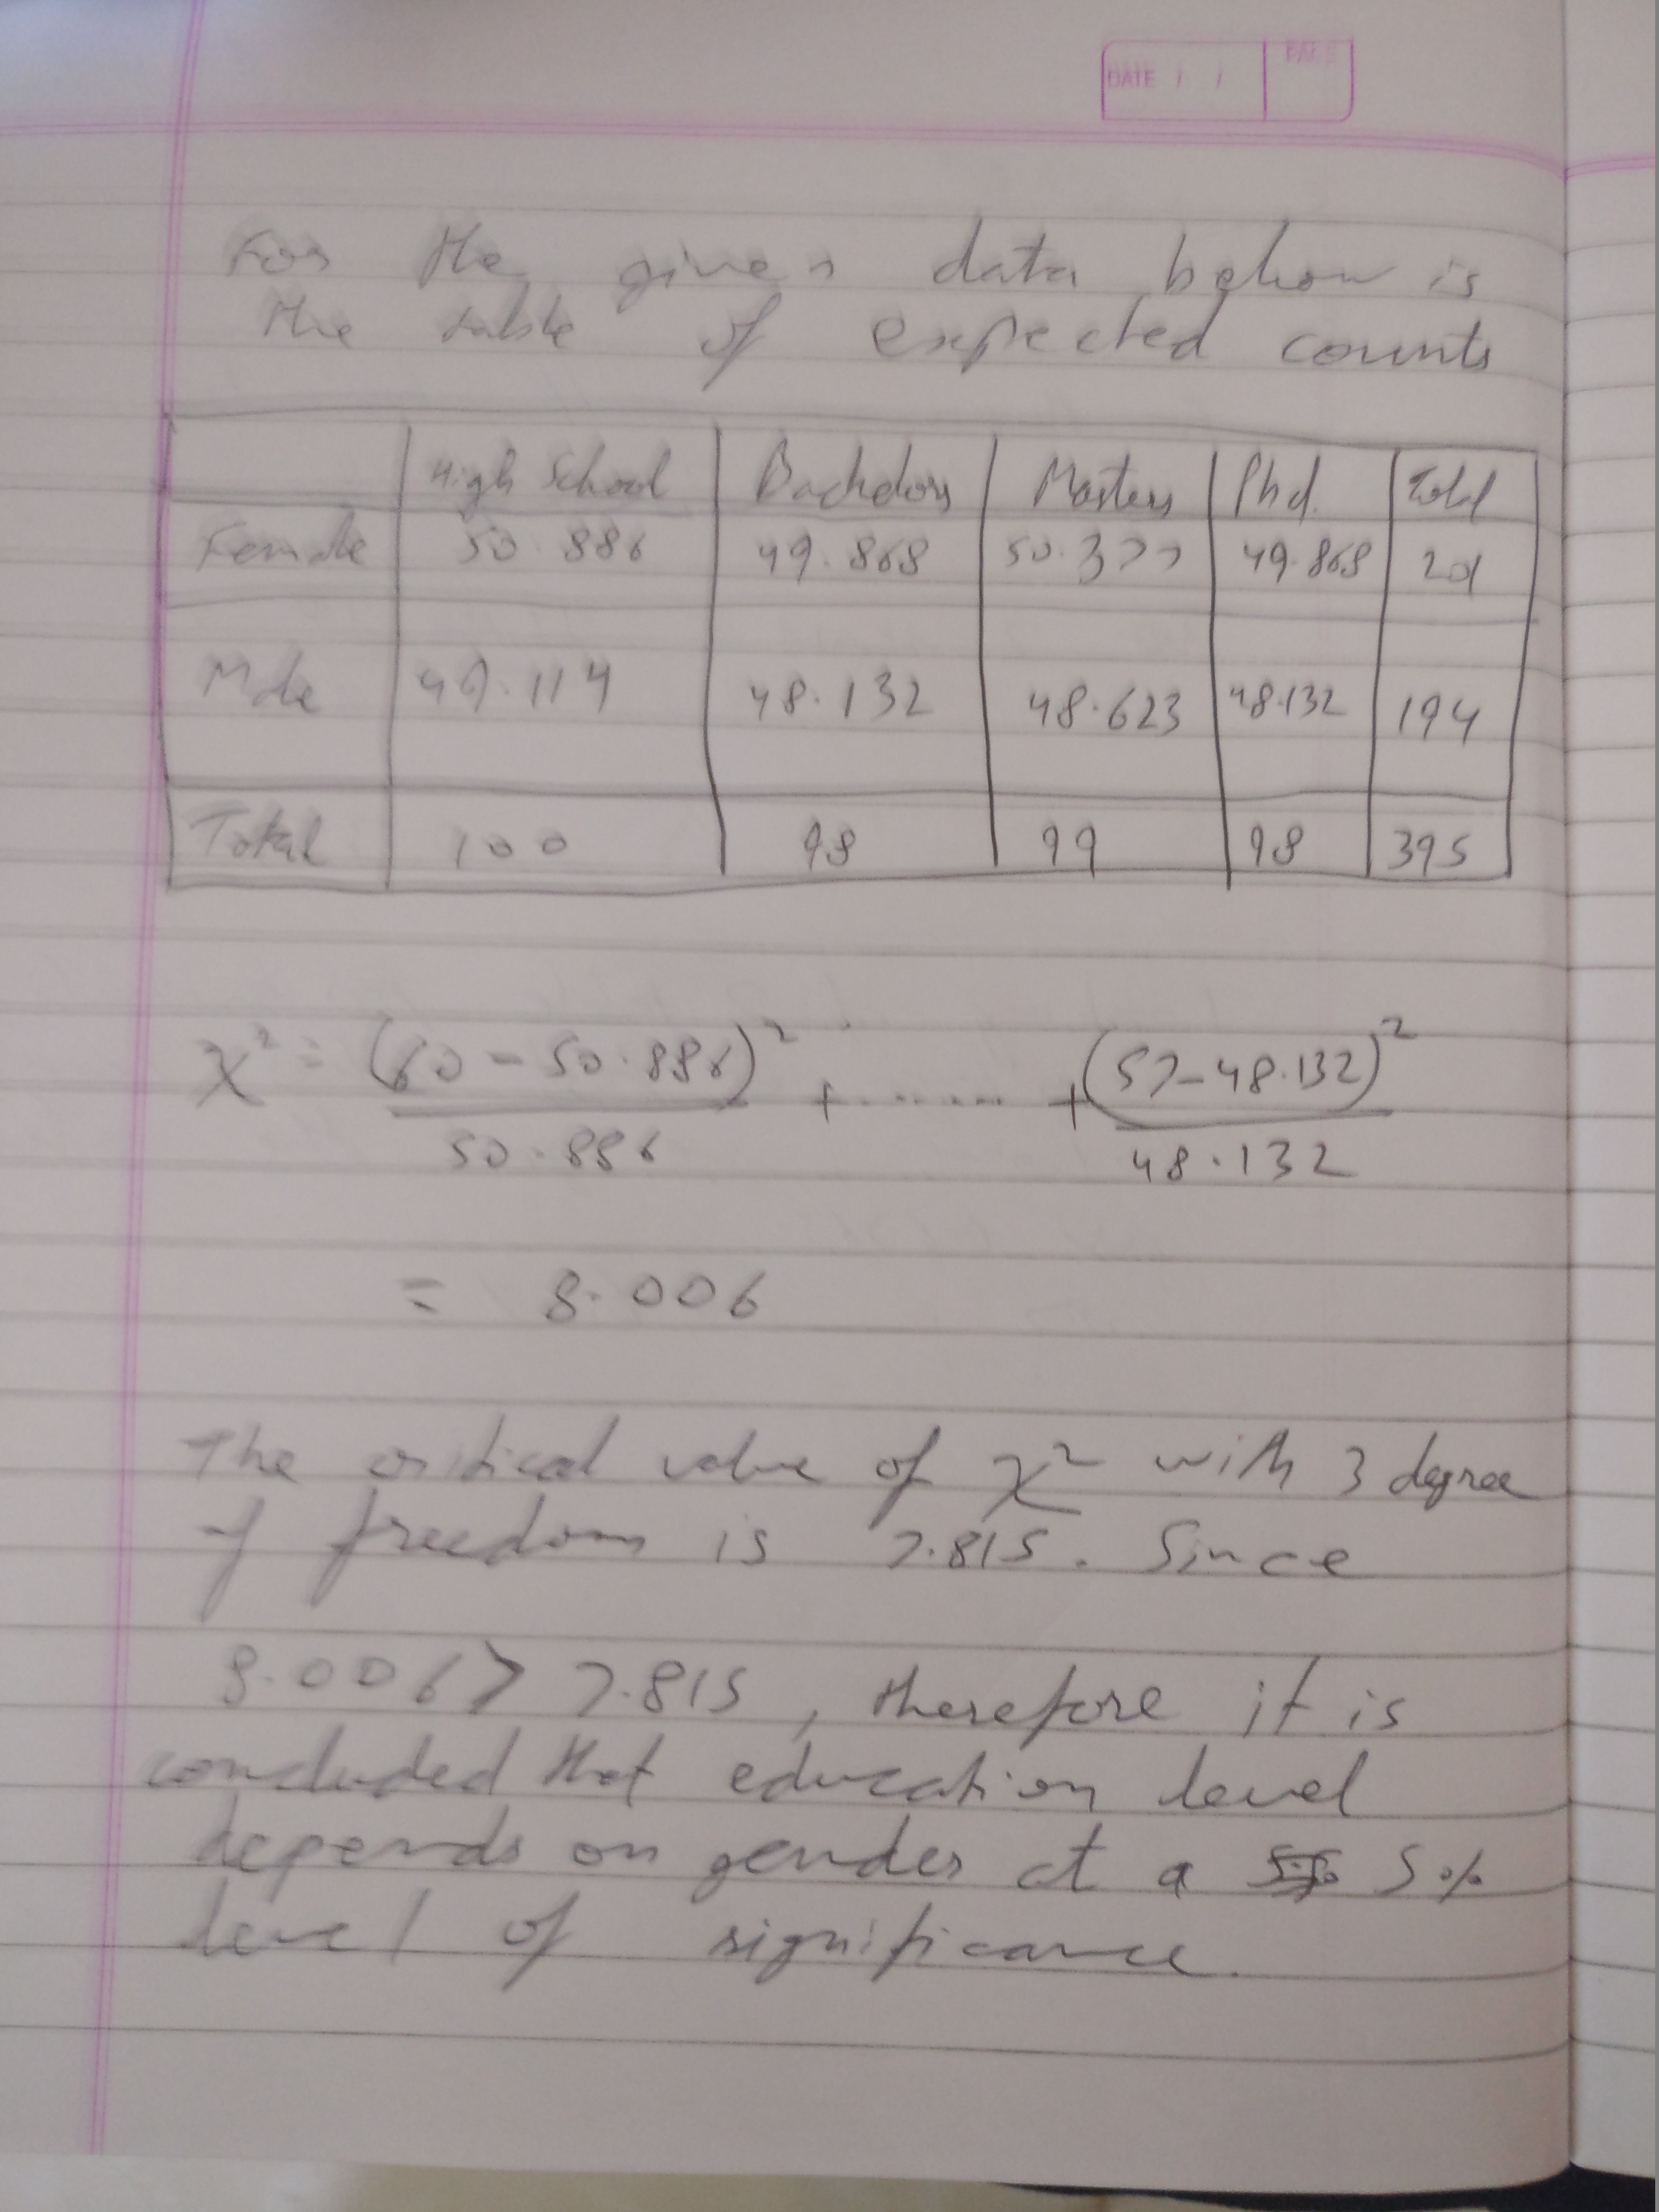 DATE / /
PAGE
For the given data below is
the table of expected counts
High School Bachelors Masters Phd. Total
Female 50.886 49.868 50.377 49.868 201
Male 49.114 48.132 48.623 48.132 194
Total 100 98 99 98 395
χ² = (60 - 50.886)² / 50.886 + ........ + (57 - 48.132)² / 48.132
= 8.006
The critical value of χ² with 3 degree
of freedom is 7.815. Since
8.006 > 7.815, therefore it is
concluded that education level
depends on gender at a 5%
level of significance.